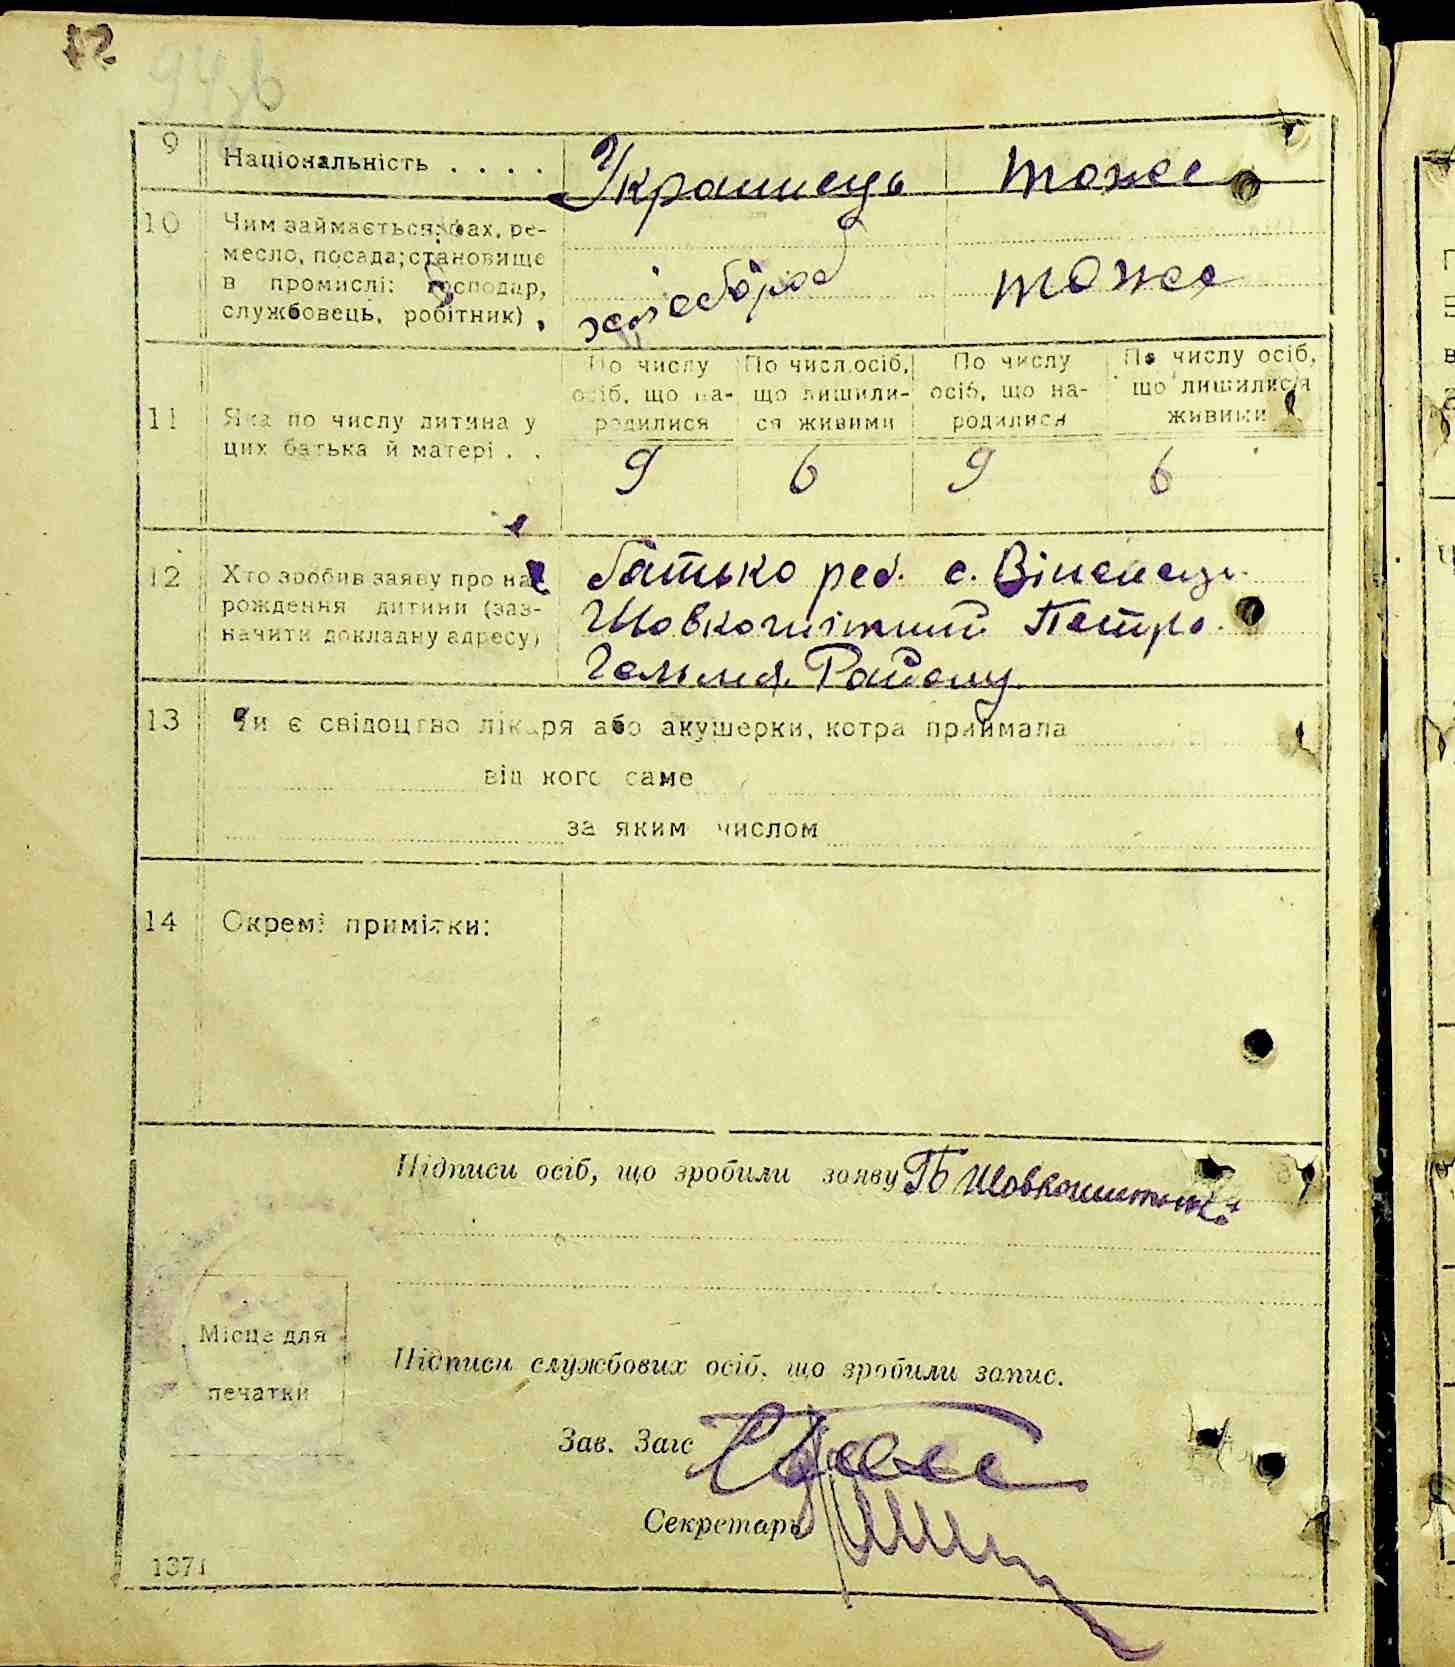 9 Національність . . . . . Украинець тоже
10 Чим займається: фах, ре-
месло, посада; становище
в промислі: господар,
службовець, робітник) , хлебороб тоже
По числу По числ.осіб, По числу По числу осіб,
осіб, що на- що лишили- осіб, що на- що лишилися
родилися ся живими родилися живими
11 Яка по числу дитина у
цих батька й матері . . 9 6 9 6
12 Хто зробив заяву про на- батько реб. с. Вінинець
рождення дитини (заз- Шовкошітний Петро.
начити докладну адресу) Гельмяз. Району
13 Чи є свідоцтво лікаря або акушерки, котра приймала
від кого саме
за яким числом
14 Окремі примітки:
Підписи осіб, що зробили заяву ПБ Шовкошитний
Місце для
печатки
Підписи службових осіб, що зробили запис.
Зав. Загс
Секретарь
1371